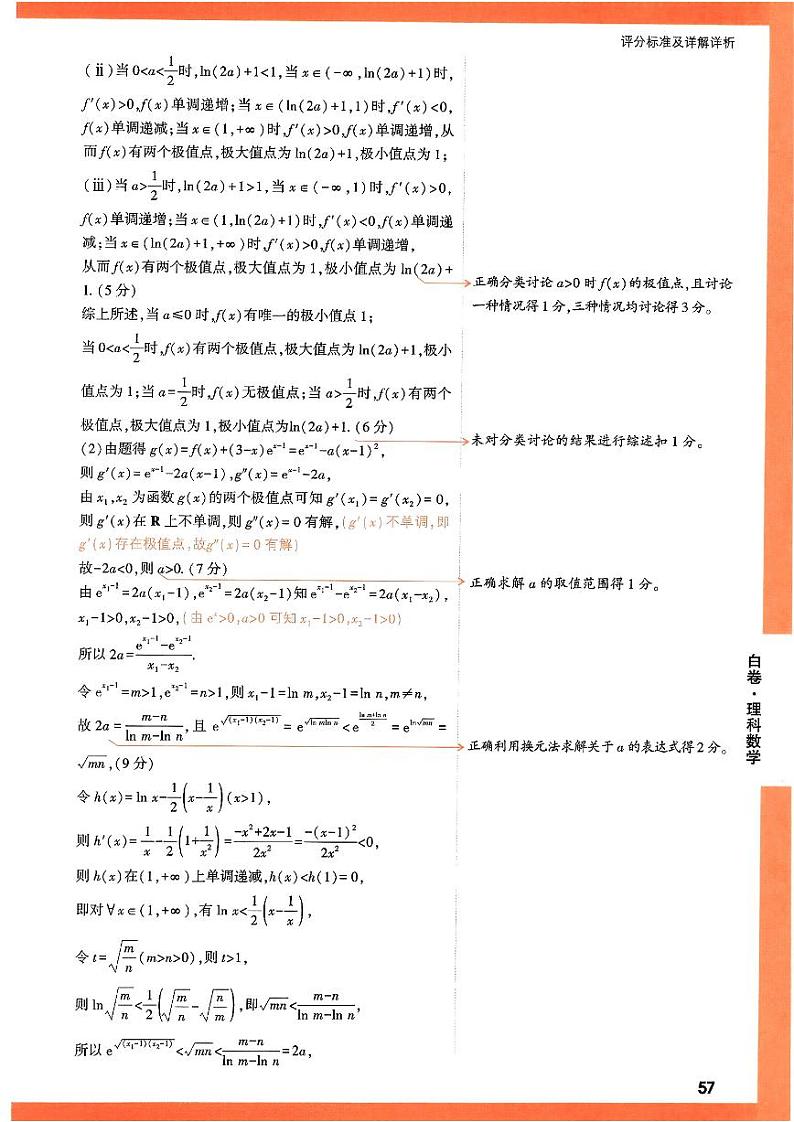 评分标准及详解详析
(ⅱ)当0<a<1/2时,ln(2a)+1<1,当x∈(-∞,ln(2a)+1)时,
f′(x)>0,f(x)单调递增;当x∈(ln(2a)+1,1)时,f′(x)<0,
f(x)单调递减;当x∈(1,+∞)时,f′(x)>0,f(x)单调递增,从
而f(x)有两个极值点,极大值点为ln(2a)+1,极小值点为1;
(ⅲ)当a>1/2时,ln(2a)+1>1,当x∈(-∞,1)时,f′(x)>0,
f(x)单调递增;当x∈(1,ln(2a)+1)时,f′(x)<0,f(x)单调递
减;当x∈(ln(2a)+1,+∞)时,f′(x)>0,f(x)单调递增,
从而f(x)有两个极值点,极大值点为1,极小值点为ln(2a)+
1.(5分)
正确分类讨论a>0时f(x)的极值点,且讨论
一种情况得1分,三种情况均讨论得3分。
综上所述,当a≤0时,f(x)有唯一的极小值点1;
当0<a<1/2时,f(x)有两个极值点,极大值点为ln(2a)+1,极小
值点为1;当a=1/2时,f(x)无极值点;当a>1/2时,f(x)有两个
极值点,极大值点为1,极小值点为ln(2a)+1.(6分)
未对分类讨论的结果进行综述扣1分。
(2)由题得g(x)=f(x)+(3-x)e^(x-1)=e^(x-1)-a(x-1)²,
则g′(x)=e^(x-1)-2a(x-1),g″(x)=e^(x-1)-2a,
由x₁,x₂为函数g(x)的两个极值点可知g′(x₁)=g′(x₂)=0,
则g′(x)在R上不单调,则g″(x)=0有解,(g′(x)不单调,即
g′(x)存在极值点,故g″(x)=0有解)
故-2a<0,则a>0.(7分)
正确求解a的取值范围得1分。
由e^(x₁-1)=2a(x₁-1),e^(x₂-1)=2a(x₂-1)知e^(x₁-1)-e^(x₂-1)=2a(x₁-x₂),
x₁-1>0,x₂-1>0,(由eˣ>0,a>0可知x₁-1>0,x₂-1>0)
所以2a=(e^(x₁-1)-e^(x₂-1))/(x₁-x₂).
令e^(x₁-1)=m>1,e^(x₂-1)=n>1,则x₁-1=ln m,x₂-1=ln n,m≠n,
故2a=(m-n)/(ln m-ln n),且e^√((x₁-1)(x₂-1))=e^√(ln mln n)<e^((ln m+ln n)/2)=e^(ln√(mn))=
√(mn),(9分)
正确利用换元法求解关于a的表达式得2分。
令h(x)=ln x-1/2(x-1/x)(x>1),
则h′(x)=1/x-1/2(1+1/x²)=(-x²+2x-1)/(2x²)=-(x-1)²/(2x²)<0,
则h(x)在(1,+∞)上单调递减,h(x)<h(1)=0,
即对∀x∈(1,+∞),有ln x<1/2(x-1/x),
令t=√(m/n)(m>n>0),则t>1,
则ln√(m/n)<1/2(√(m/n)-√(n/m)),即√(mn)<(m-n)/(ln m-ln n),
所以e^√((x₁-1)(x₂-1))<√(mn)<(m-n)/(ln m-ln n)=2a,
白卷·理科数学
57